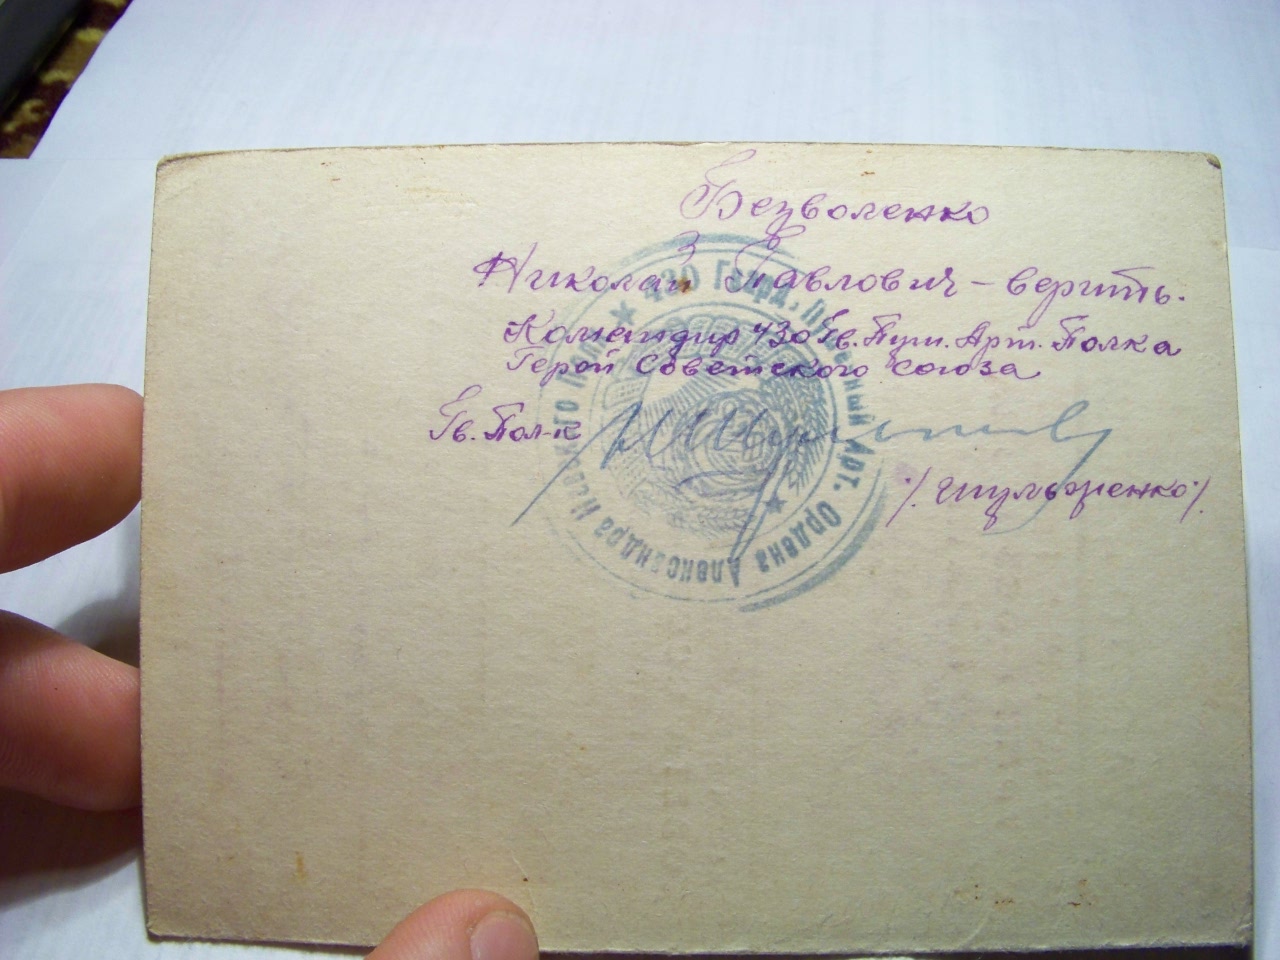 Безволенко
Николай Павлович - верить.
Командир 430 Гв. Пуш. Арт. Полка
Герой Советского Союза
Гв. Пол-к
/. Шульженко ./.
★ 430 Гвард. Пушечный Арт. Ордена Александра Невского Полк ★